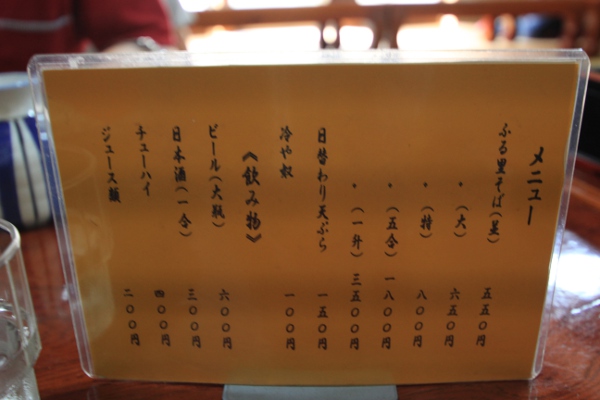 メニュー
ふる里そば(並) 五五〇円
〃 (大) 六五〇円
〃 (特) 八〇〇円
〃 (五合) 一八〇〇円
〃 (一升) 三五〇〇円
日替わり天ぷら 一五〇円
冷や奴 一〇〇円
《飲み物》
ビール(大瓶) 六〇〇円
日本酒(一合) 三〇〇円
チューハイ 四〇〇円
ジュース類 二〇〇円